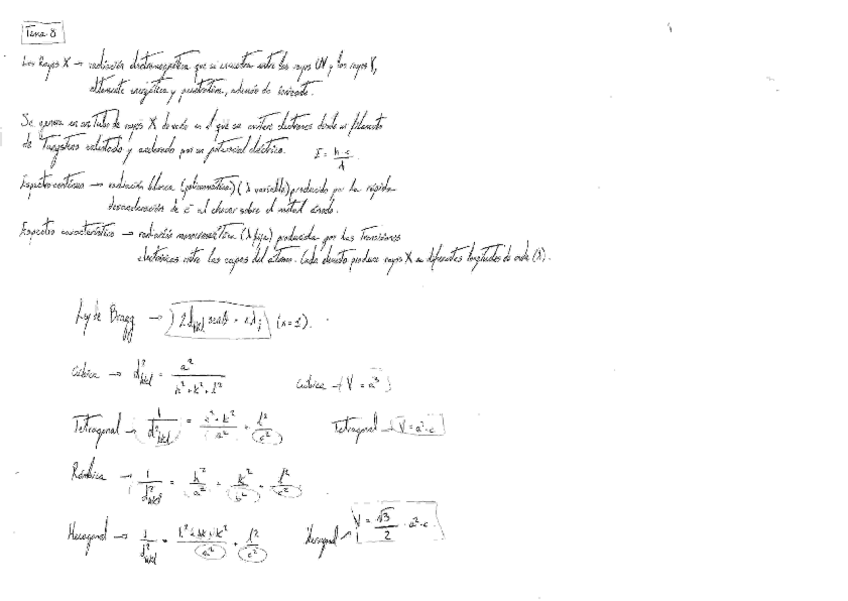 Tema 8
Los Rayos X → radiación electromagnética que se encuentra entre los rayos UV y los rayos γ,
altamente energética y penetrante, además de ionizante.
Se genera en un Tubo de rayos X en el que se emiten electrones desde un filamento
de Tungsteno calentado y acelerado por un potencial eléctrico. E = h·c / λ
Espectro continuo → radiación blanca (policromática) (λ variable) producido por la rápida
desaceleración de e⁻ al chocar sobre el metal ánodo.
Espectro característico → radiación monocromática (λ fija) producida por las Transiciones
electrónicas entre las capas del átomo. Cada elemento produce rayos X a diferentes longitudes de onda (λ).
Ley de Bragg → 2d_hkl senθ = nλ; (n=1).
Cúbica → d²_hkl = a² / h²+k²+l² Cúbica → V = a³
Tetragonal → 1/d²_hkl = h²+k²/a² + l²/c² Tetragonal → V = a²·c
Rómbica → 1/d²_hkl = h²/a² + k²/b² + l²/c²
Hexagonal → 1/d²_hkl = h²+hk+k²/a² + l²/c² Hexagonal → V = √3/2 · a²·c